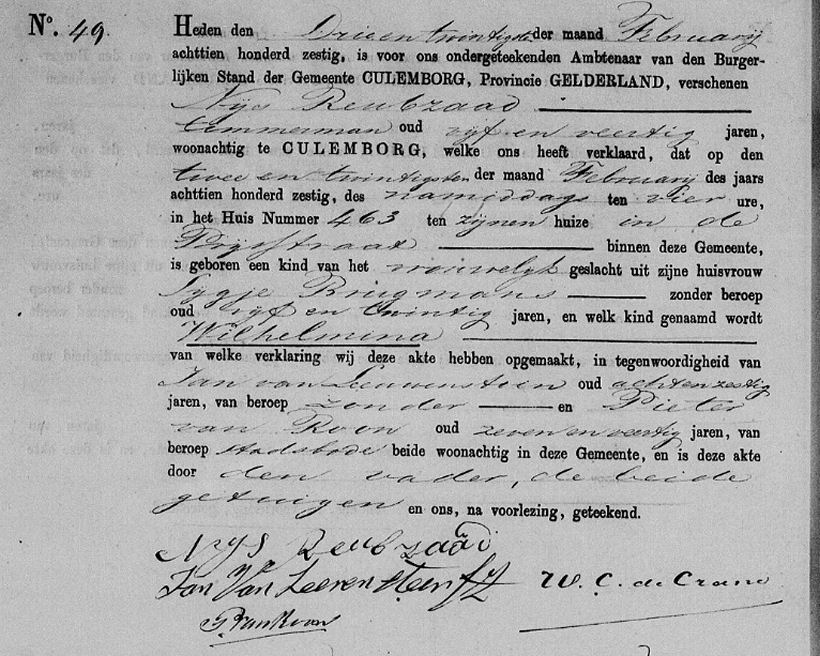 Nº. 49. Heden den Drieentwintigsten der maand Februarij
achttien honderd zestig, is voor ons ondergeteekenden Ambtenaar van den Burger-
lijken Stand der Gemeente CULEMBORG, Provincie GELDERLAND, verschenen
Nijs Reubzaad
timmerman oud vijf en veertig jaren,
woonachtig te CULEMBORG, welke ons heeft verklaard, dat op den
twee en twintigsten der maand Februarij des jaars
achttien honderd zestig, des namiddags ten vier ure,
in het Huis Nummer 463 ten zijnen huize in de
Prijsstraat binnen deze Gemeente,
is geboren een kind van het vrouwelijk geslacht uit zijne huisvrouw
Sijgje Brugmans zonder beroep
oud vijf en twintig jaren, en welk kind genaamd wordt
Wilhelmina
van welke verklaring wij deze akte hebben opgemaakt, in tegenwoordigheid van
Jan van Leeuwenstein oud achtenzestig
jaren, van beroep zonder en Pieter
van Roon oud zeven en veertig jaren, van
beroep stadsbode beide woonachtig in deze Gemeente, en is deze akte
door den vader, de beide
getuigen en ons, na voorlezing, geteekend.
Nijs Reubzaad
Jan Van Leeven steen W. C. de Crane
P van Roon